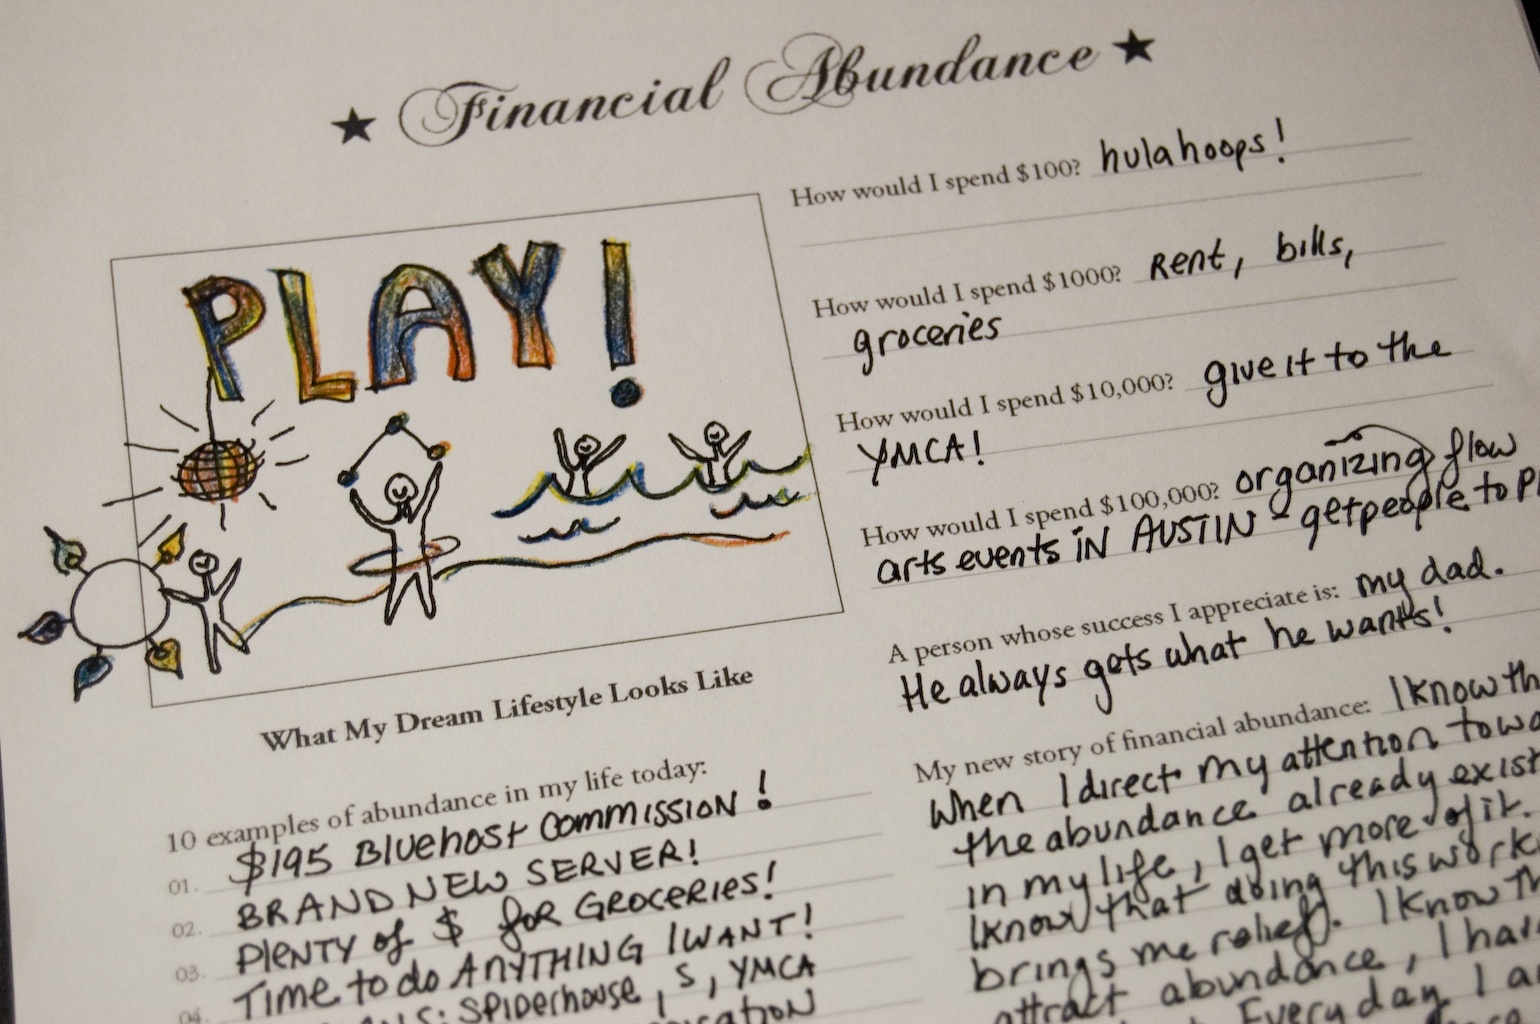 ★ Financial Abundance ★
PLAY!
What My Dream Lifestyle Looks Like
10 examples of abundance in my life today:
01. $195 Bluehost commission!
02. BRAND NEW SERVER!
03. PLENTY of $ for GROCERIES!
04. Time to do ANYTHING I WANT!
: Spiderhouse, S, YMCA
How would I spend $100? hulahoops!
How would I spend $1000? Rent, bills,
groceries
How would I spend $10,000? give it to the
YMCA!
How would I spend $100,000? organizing flow
arts events in AUSTIN - get people to
A person whose success I appreciate is: my dad.
He always gets what he wants!
My new story of financial abundance: I know
When I direct my attention
the abundance already
in my life, I get more of it.
I know that doing this
brings me relief. I know
attract abundance, I
Everyday I